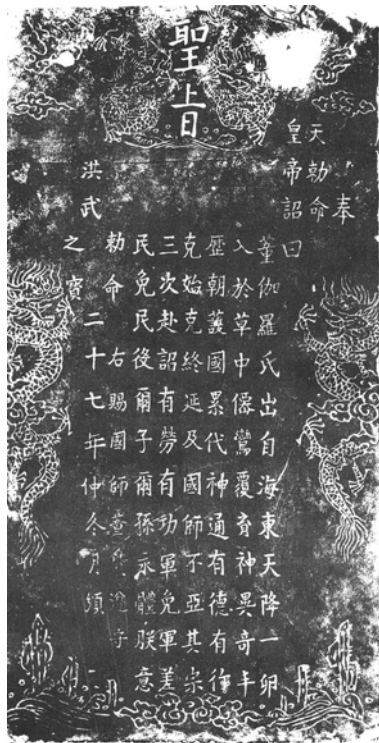 聖上日
奉
天勅命
皇帝詔曰
董伽羅氏出自海東天降一卵
入於草中僊鸞覆育神異奇丰
歷朝護國累代神通有德有行
克始克終延及國師不亞其宗
三次赴詔有勞有功軍免軍差
民免民役爾子爾孫永體朕意
勅命右賜國師董
洪武之寳二十七年仲冬月頒